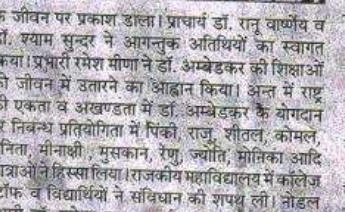 के जीवन पर प्रकाश डाला। प्राचार्य डॉ. रानू वार्ष्णेय व
डॉ. श्याम सुन्दर ने आगन्तुक अतिथियों का स्वागत
किया। प्रभारी रमेश मीणा ने डॉ. अम्बेडकर की शिक्षाओं
को जीवन में उतारने का आह्वान किया। अन्त में राष्ट्र
की एकता व अखण्डता में डॉ. अम्बेडकर के योगदान
निबन्ध प्रतियोगिता में पिंकी, राजू, शीतल, कोमल,
मीनाक्षी, मुसकान, रेणु, ज्योति, मोनिका आदि
छात्राओं ने हिस्सा लिया। राजकीय महाविद्यालय में कॉलेज
स्टॉफ व विद्यार्थियों ने संविधान की शपथ ली। नोडल